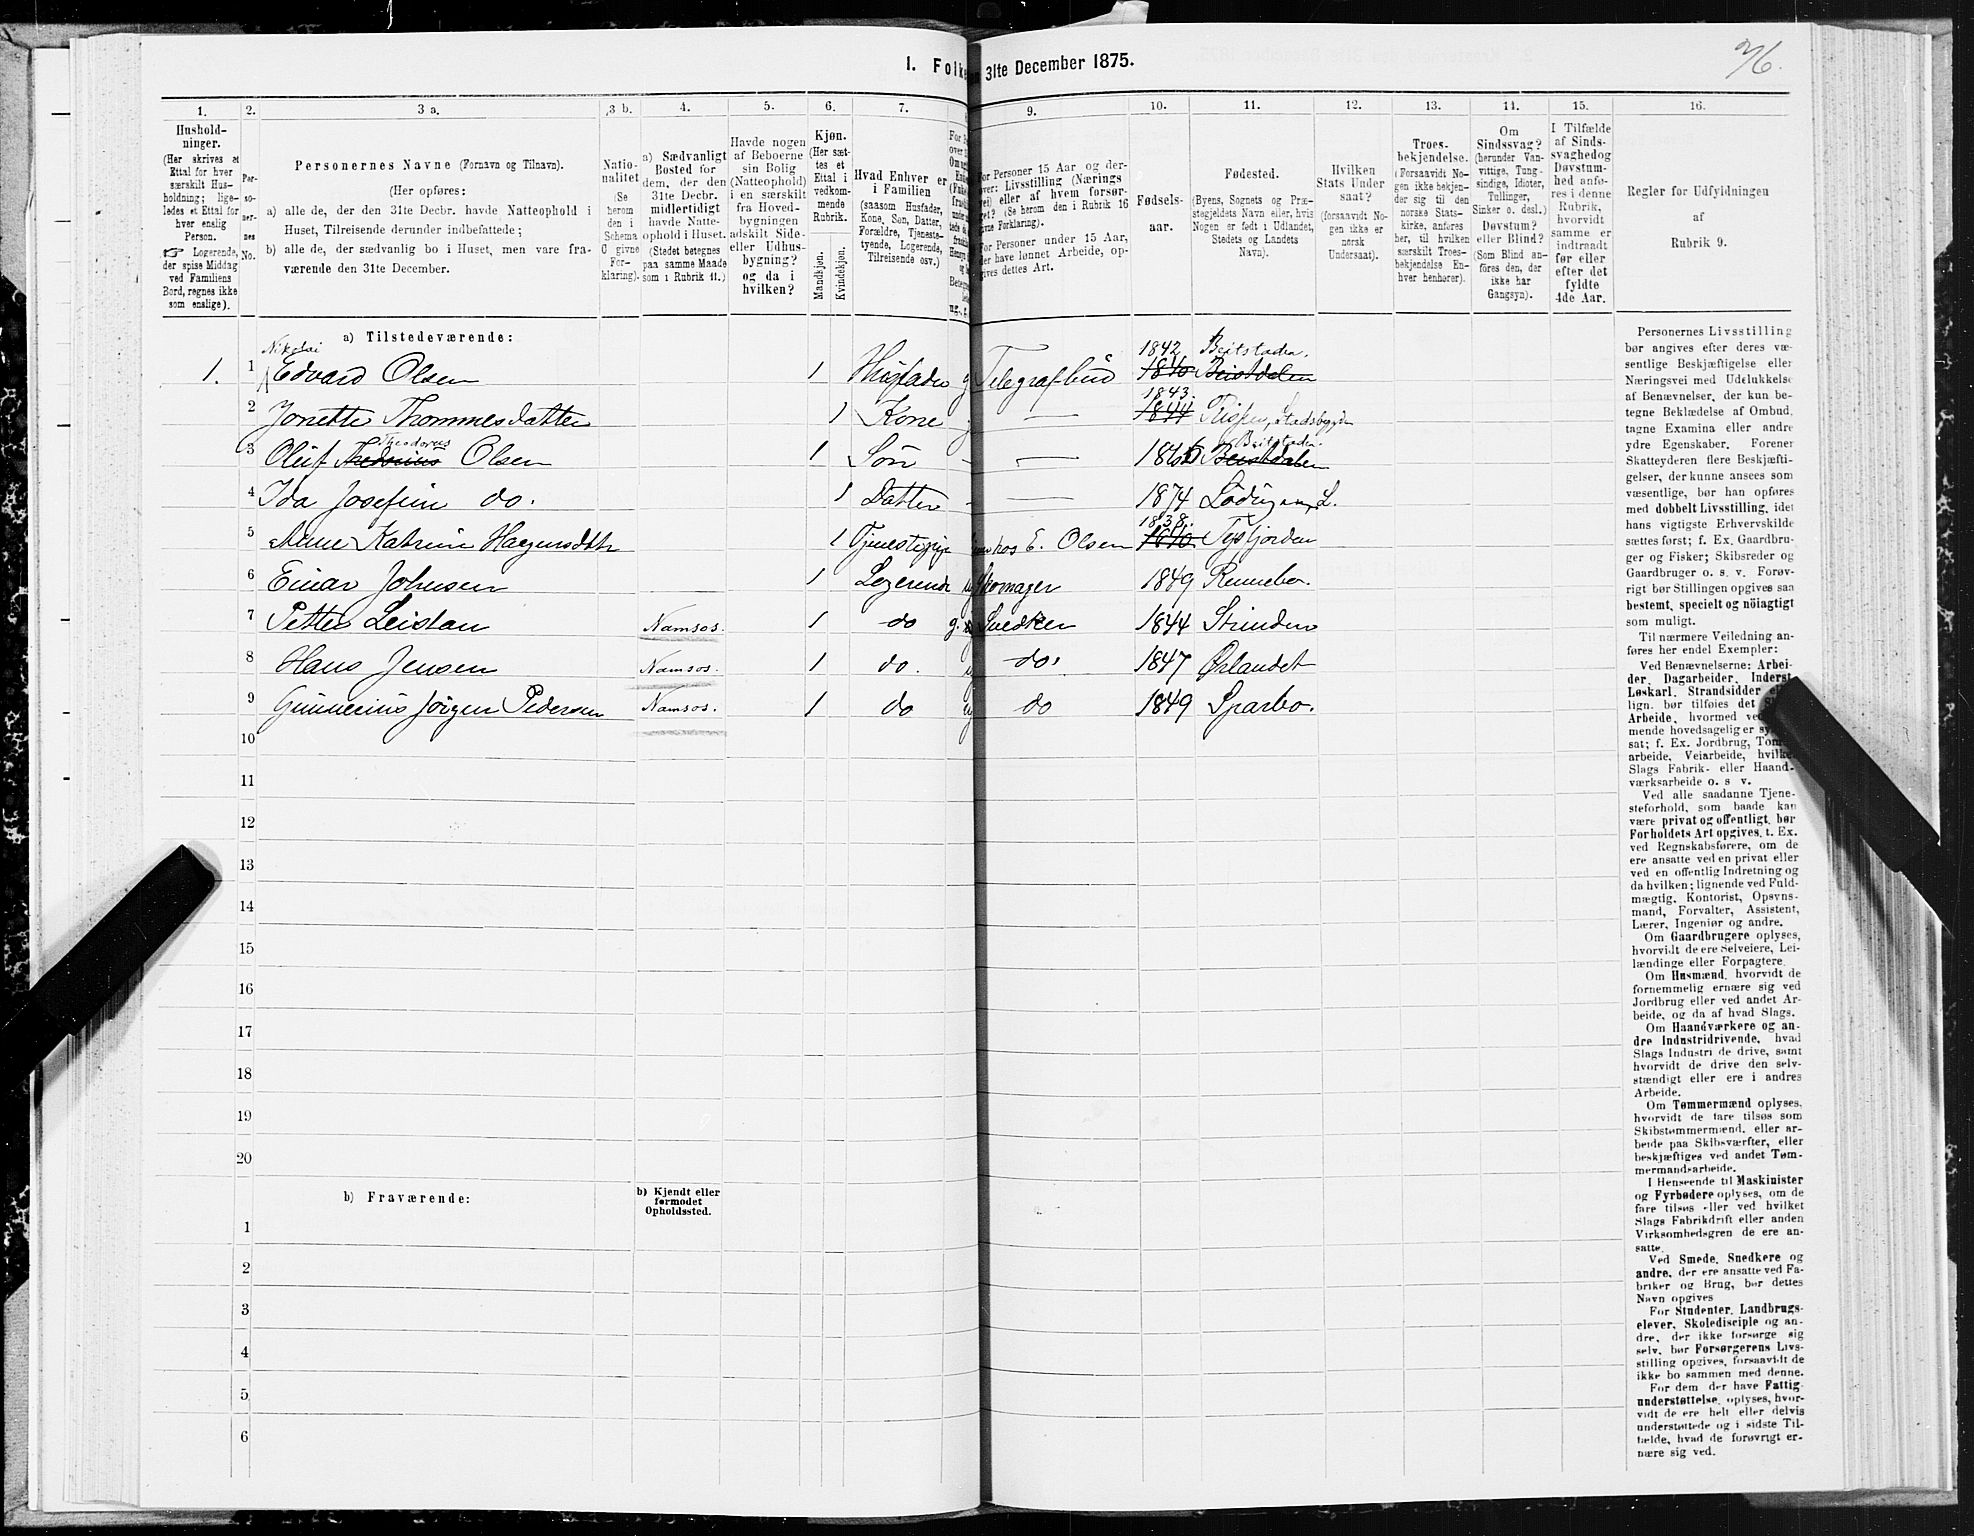 76.
1. Folke en 31te December 1875.
1. 2. 3 a. 3 b. 4. 5. 6. 7. 9. 10. 11. 12. 13. 14. 15. 16.
Hushold-
ninger.
(Her skrives et
Ettal for hver
særskilt Hus-
holdning; lige-
ledes et Ettal for
hver enslig
Person.
☞ Logerende,
der spise Middag
ved Familiens
Bord, regnes ikke
som enslige).
Per-
so-
ner-
nes
No.
Personernes Navne (Fornavn og Tilnavn).
(Her opføres:
a) alle de, der den 31te Decbr. havde Natteophold i
Huset, Tilreisende derunder indbefattede;
b) alle de, der sædvanlig bo i Huset, men vare fra-
værende den 31te December.
Natio-
nalitet
(Se
herom
den i
Schema
O givne
For-
klaring).
a) Sædvanligt
Bosted for
dem, der den
31te Decbr.
midlertidigt
havde Natte-
ophold i Huset.
(Stedet betegnes
paa samme Maade
som i Rubrik 11.)
Havde nogen
af Beboerne
sin Bolig
(Natteophold)
i en særskilt
fra Hoved-
bygningen
adskilt Side-
eller Udhus-
bygning?
og da i
hvilken?
Kjøn.
(Her sæt-
tes et
Ettal i
vedkom-
mende
Rubrik.
Mandkjøn.
Kvindekjøn.
Hvad Enhver er
i Familien
(saasom Husfader,
Kone, Søn, Datter,
Forældre, Tjeneste-
tyende, Logerende,
Tilreisende osv.)
For Personer 15 Aar og der-
over: Livsstilling (Nærings
vei) eller af hvem forsør-
get? (Se herom den i Rubrik 16
givne Forklaring).
For Personer under 15 Aar,
der have lønnet Arbeide, op-
gives dettes Art.
Fødsels-
aar.
Fødested.
(Byens, Sognets og Præ-
stegjeldets Navn eller, hvis
Nogen er født i Udlandet,
Stedets og Landets
Navn).
Hvilken
Stats Under
saat?
(forsaavidt No-
gen ikke er
norsk
Undersaat).
Troes-
bekjendelse.
(Forsaavidt No-
gen ikke bekjen-
der sig til den
norske Stats-
kirke, anføres
her, til hvilken
særskilt Troes-
bekjendelse En-
hver henhører).
Om
Sindssvag?
(herunder Van-
vittige, Tung-
sindige, Idioter,
Tullinger,
Sinker o. desl.)
Døvstum?
eller Blind?
(Som Blind an-
føres den, der
ikke har
Gangsyn).
I Tilfælde
af Sinds-
svaghed og
Døvstum-
hed anfø-
res i denne
Rubrik,
hvorvidt
samme er
indtraadt
før eller
efter det
fyldte
4de Aar.
Regler for Udfyldningen
af
Rubrik 9.
a) Tilstedeværende:
Nikolai 1842 Beitstaden.
1. 1 Edvard Olsen 1 Husfader g Telegrafbud 1840 Beistdalen
1843.
2 Jonette Thommesdatter 1 Kone g — 1844 Rissen, Stadsbygden
Theodorus Beitstaden.
3 Oluf Thedorius Olsen 1 Søn - — 1866 Beistdalen
4 Ida Josefine do. 1 Datter - — 1874 Lødingen, L.
1838.
5 Anne Katrine Hagensdtr 1 Tjenestepige hos E. Olsen 1840. Tysfjorden
6 Einar Johnsen 1 Logerende ug Skomager 1849 Rennebo.
7 Petter Leistan Namsos. 1 do g. Snedker 1844 Strinden
8 Hans Jensen Namsos. 1 do. ug do. 1847 Ørlandet
9 Gunnerius Jørgen Pedersen Namsos. 1 do ug do 1849 Sparbo.
10
11
12
13
14
15
16
17
18
19
20
b) Fraværende: b) Kjendt eller
formodet
Opholdssted.
1
2
3
4
5
6
Personernes Livsstilling
bør angives efter deres væ-
sentlige Beskjæftigelse eller
Næringsvei med Udelukkelse
af Benævnelser, der kun be-
tegne Beklædelse af Ombud,
tagne Examina eller andre
ydre Egenskaber. Forener
Skatteyderen flere Beskjæfti-
gelser, der kunne ansees som
væsentlige, bør han opføres
med dobbelt Livsstilling, idet
hans vigtigste Erhvervskilde
sættes først; f. Ex. Gaardbru-
ger og Fisker; Skibsreder og
Gaardbruger o. s. v. Forøv-
rigt bør Stillingen opgives saa
bestemt, specielt og nöiagtigt
som muligt.
Til nærmere Veiledning an-
føres her endel Exempler:
Ved Benævnelserne: Arbei-
der, Dagarbeider, Inderst,
Løskarl, Strandsidder
lign. bør tilføies det
Arbeide, hvormed
mende hovedsagelig er
sat; f. Ex. Jordbrug,
arbeide, Veiarbeide,
Slags Fabrik- eller Haand-
værksarbeide o. s v.
Ved alle saadanne Tjene-
steforhold, som baade kan
være privat og offentligt, bør
Forholdets Art opgives, t. Ex.
ved Regnskabsførere, om de
ere ansatte ved en privat eller
ved en offentlig Indretning og
da hvilken; lignende ved Fuld-
mægtig, Kontorist, Opsyns-
mand, Forvalter, Assistent,
Lærer, Ingeniør og andre.
Om Gaardbrugere oplyses,
hvorvidt de ere Selveiere, Lei-
lændinge eller Forpagtere.
Om Husmænd, hvorvidt de
fornemmelig ernære sig ved
Jordbrug eller ved andet Ar-
beide, og da af hvad Slags.
Om Haandværkere og an-
dre Industridrivende, hvad
Slags Industri de drive, samt
hvorvidt de drive den selv-
stændigt eller ere i andres
Arbeide.
Om Tømmermænd oplyses,
hvorvidt de fare tilsøs som
Skibstømmermænd, eller ar-
beide paa Skibsværfter, eller
beskjæftiges ved andet Tøm-
mermandsarbeide.
I Henseende til Maskinister
og Fyrbødere oplyses, om de
fare tilsøs eller ved hvilket
Slags Fabrikdrift eller anden
Virksomhedsgren de ere an-
satte.
Ved Smede, Snedkere og
andre, der ere ansatte ved Fa-
briker og Brug, bør dettes
Navn opgives
For Studenter, Landbrugs-
elever, Skoledisciple og an-
dre, der ikke forsørge sig
selv, bør Forsørgerens Livs-
stilling opgives, forsaavidt de
ikke bo sammen med denne.
For dem der have Fattig-
understøttelse, oplyses, hvor-
vidt de ere helt eller delvis
understøttede og i sidste Til-
fælde, hvad de forøvrigt er-
nære sig ved.